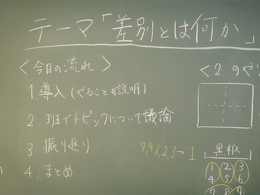 テーマ「差別とは何か」
<今日の流れ>
1. 導入(やることの説明)
2. 班でトピックについて議論
3. 振り返り
4. まとめ
7,9,1,2,3→1
黒板
1 2 3
4 5 6
7 8 9